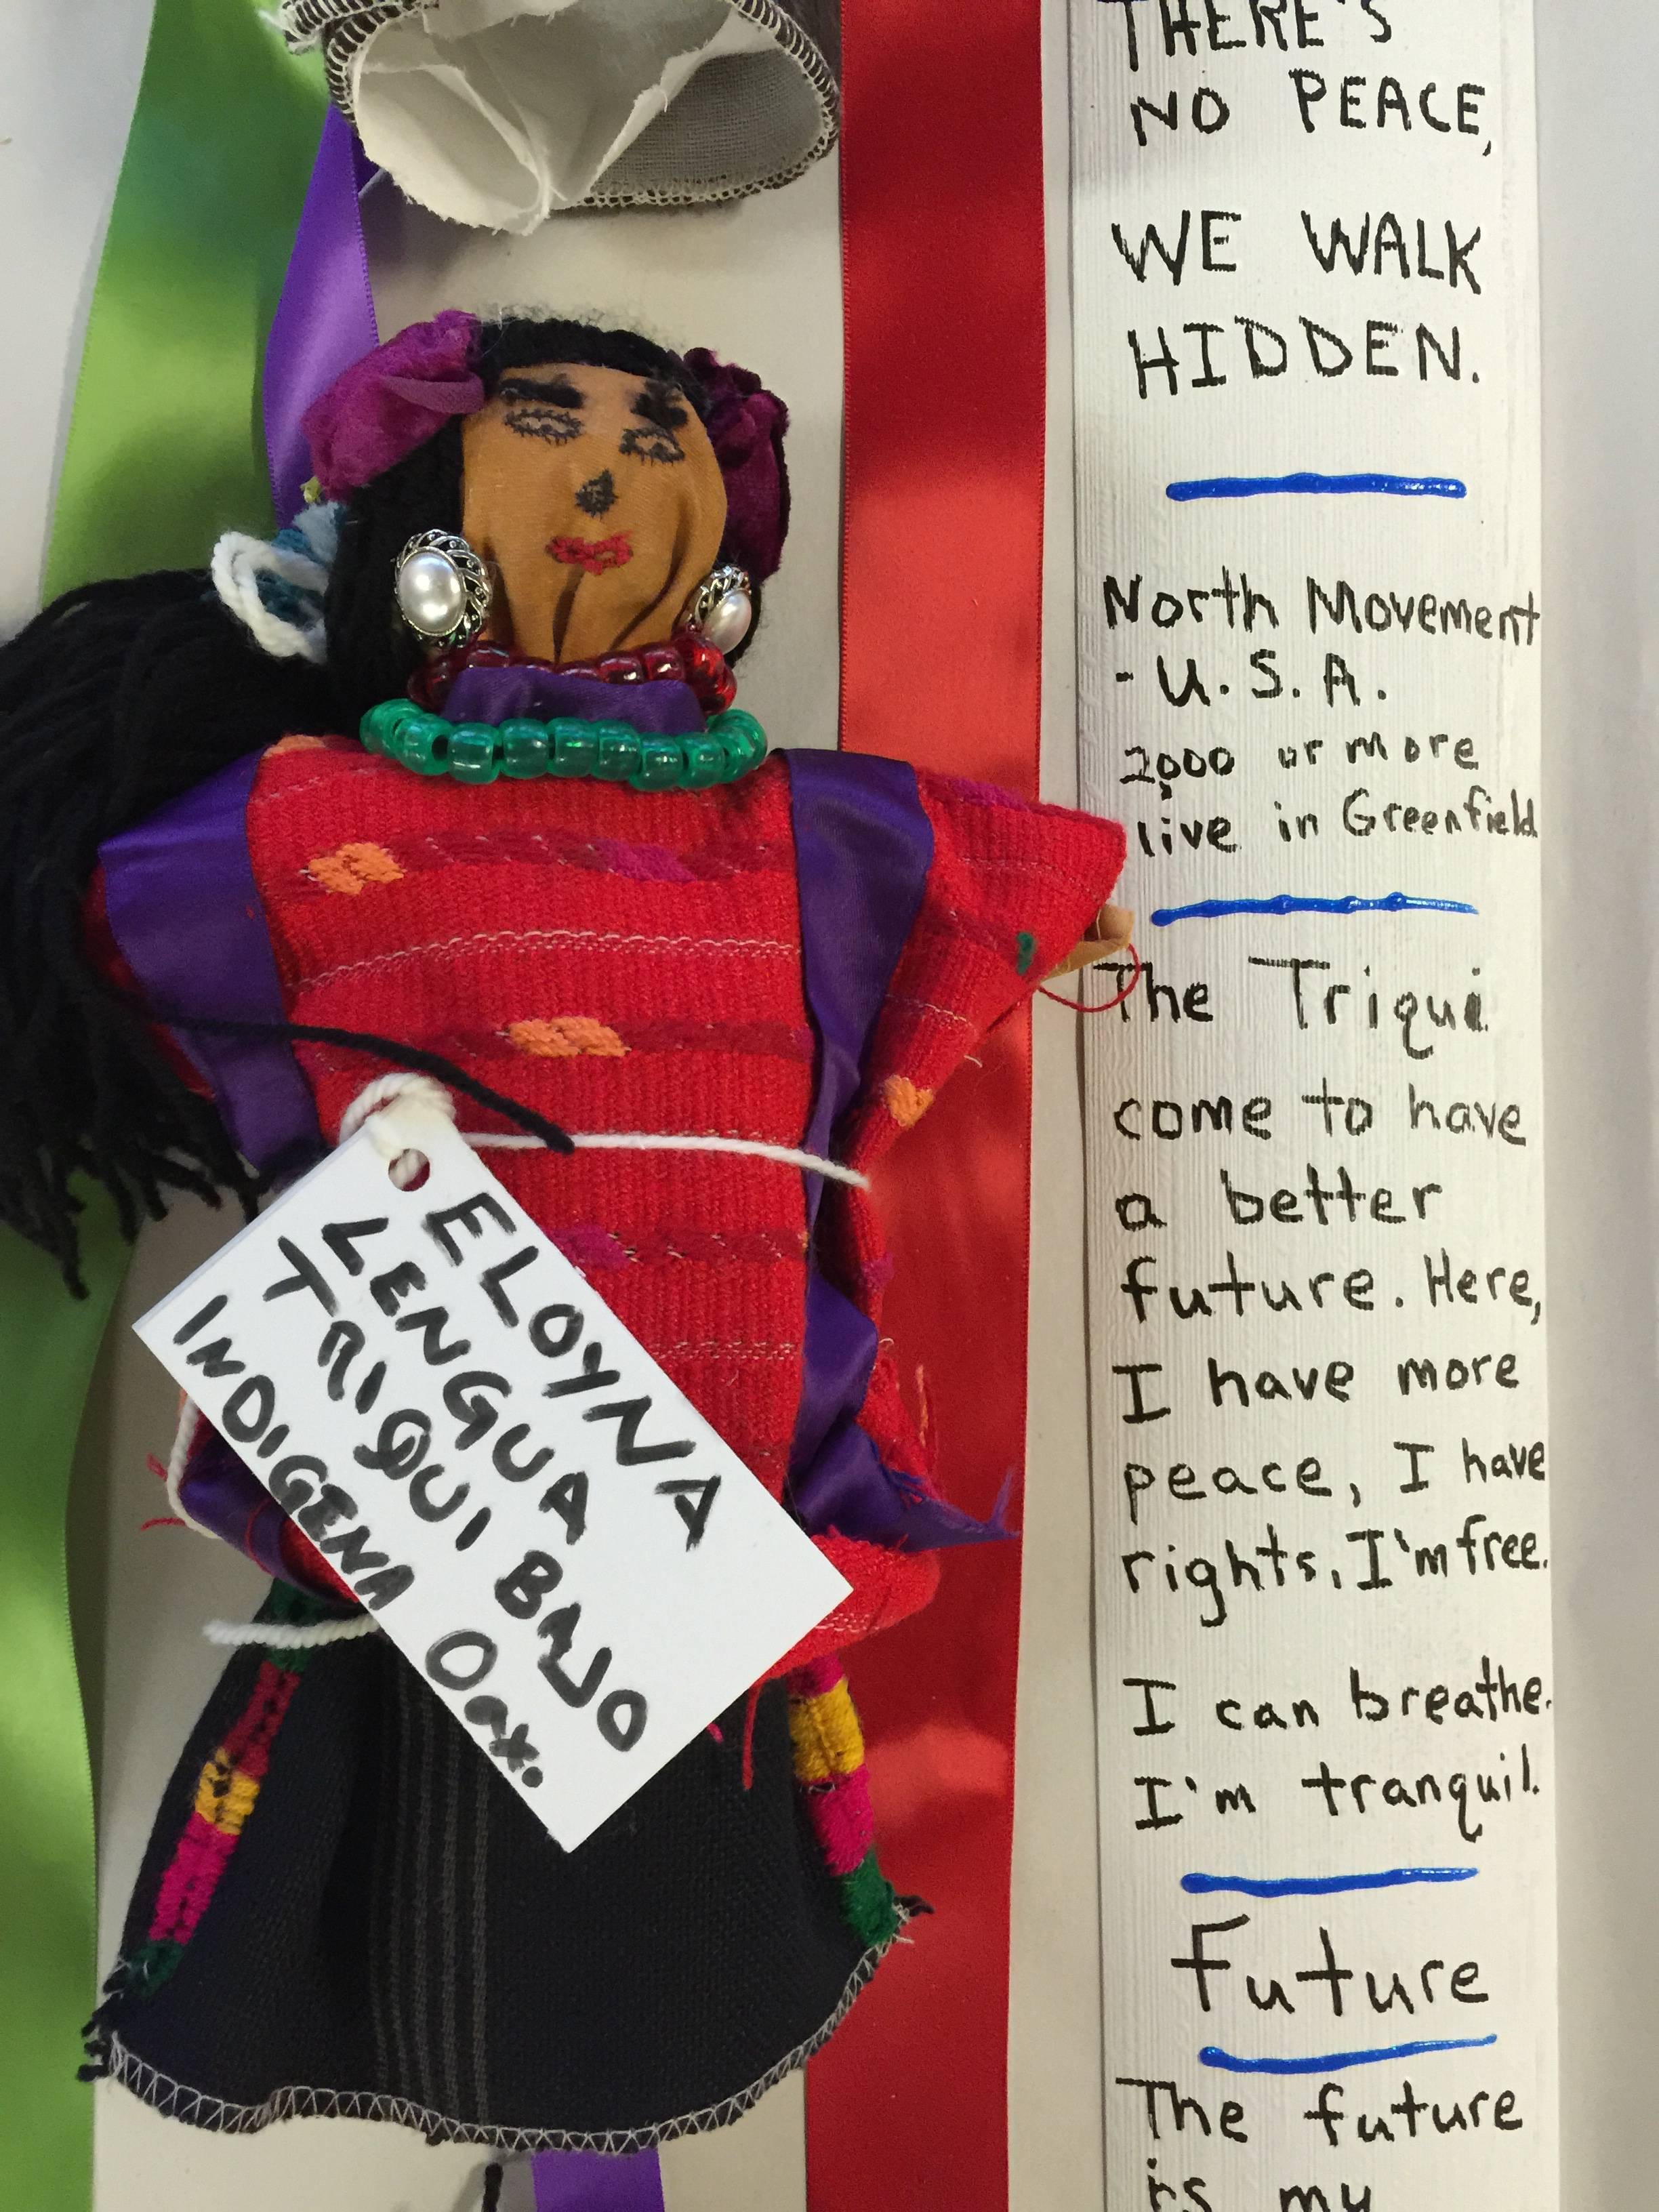 THERE'S
NO PEACE,
WE WALK
HIDDEN.
North Movement
- U.S.A.
2000 or more
live in Greenfield
The Triqui
come to have
a better
future. Here,
I have more
peace, I have
rights, I'm free.
I can breathe.
I'm tranquil.
Future
The future
is my
ELOYNA
LENGUA
TRIQUI BAJO
INDIGENA OAX.